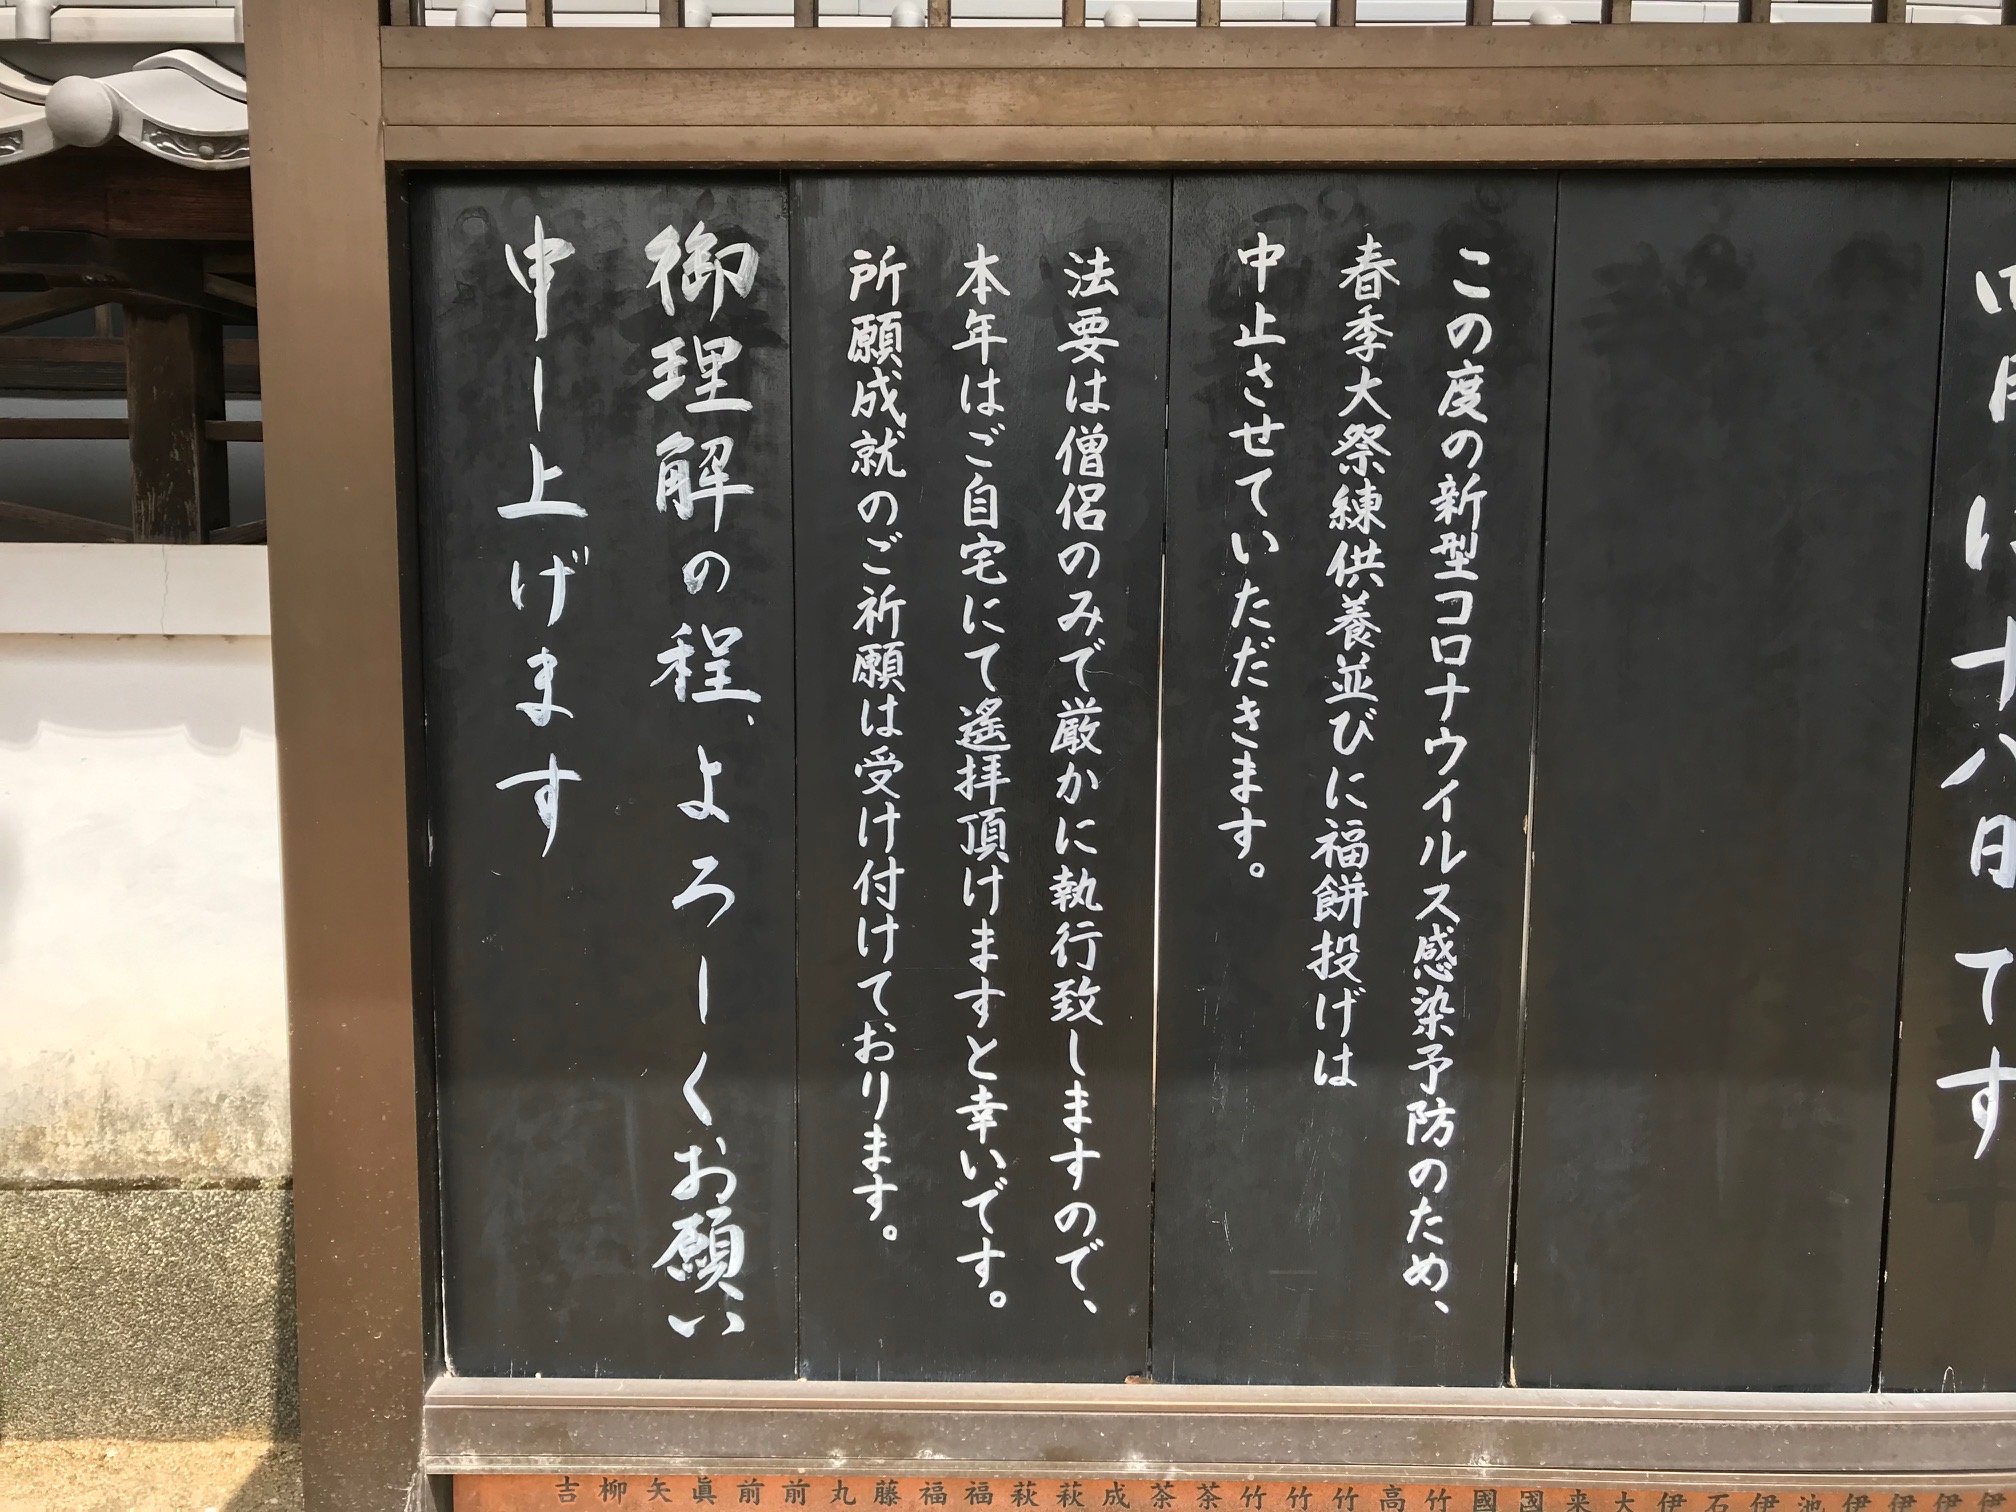 この度の新型コロナウイルス感染予防のため、
春季大祭練供養並びに福餅投げは
中止させていただきます。
法要は僧侶のみで厳かに執行致しますので、
本年はご自宅にて遙拝頂けますと幸いです。
所願成就のご祈願は受け付けております。
御理解の程、よろしくお願い
申し上げます
吉柳矢眞前前丸藤福福萩萩成茶茶竹竹竹高竹國國来大伊石伊池伊伊伊